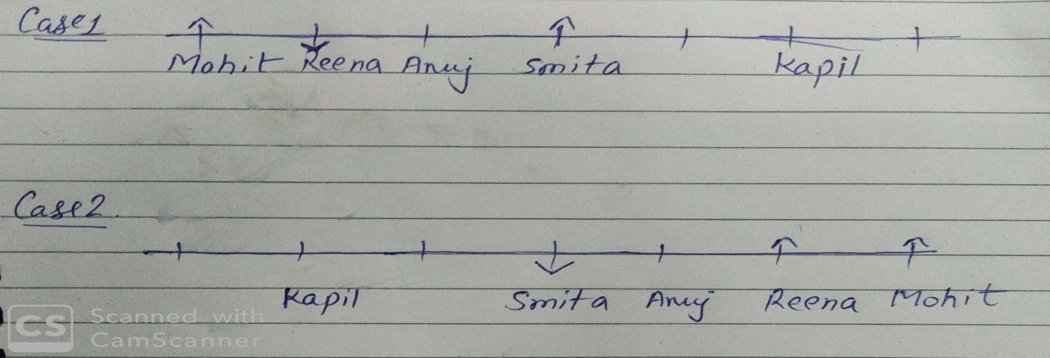 Case1
Mohit Reena Anuj Smita Kapil
Case2.
Kapil Smita Anuj Reena Mohit
CS Scanned with
CamScanner